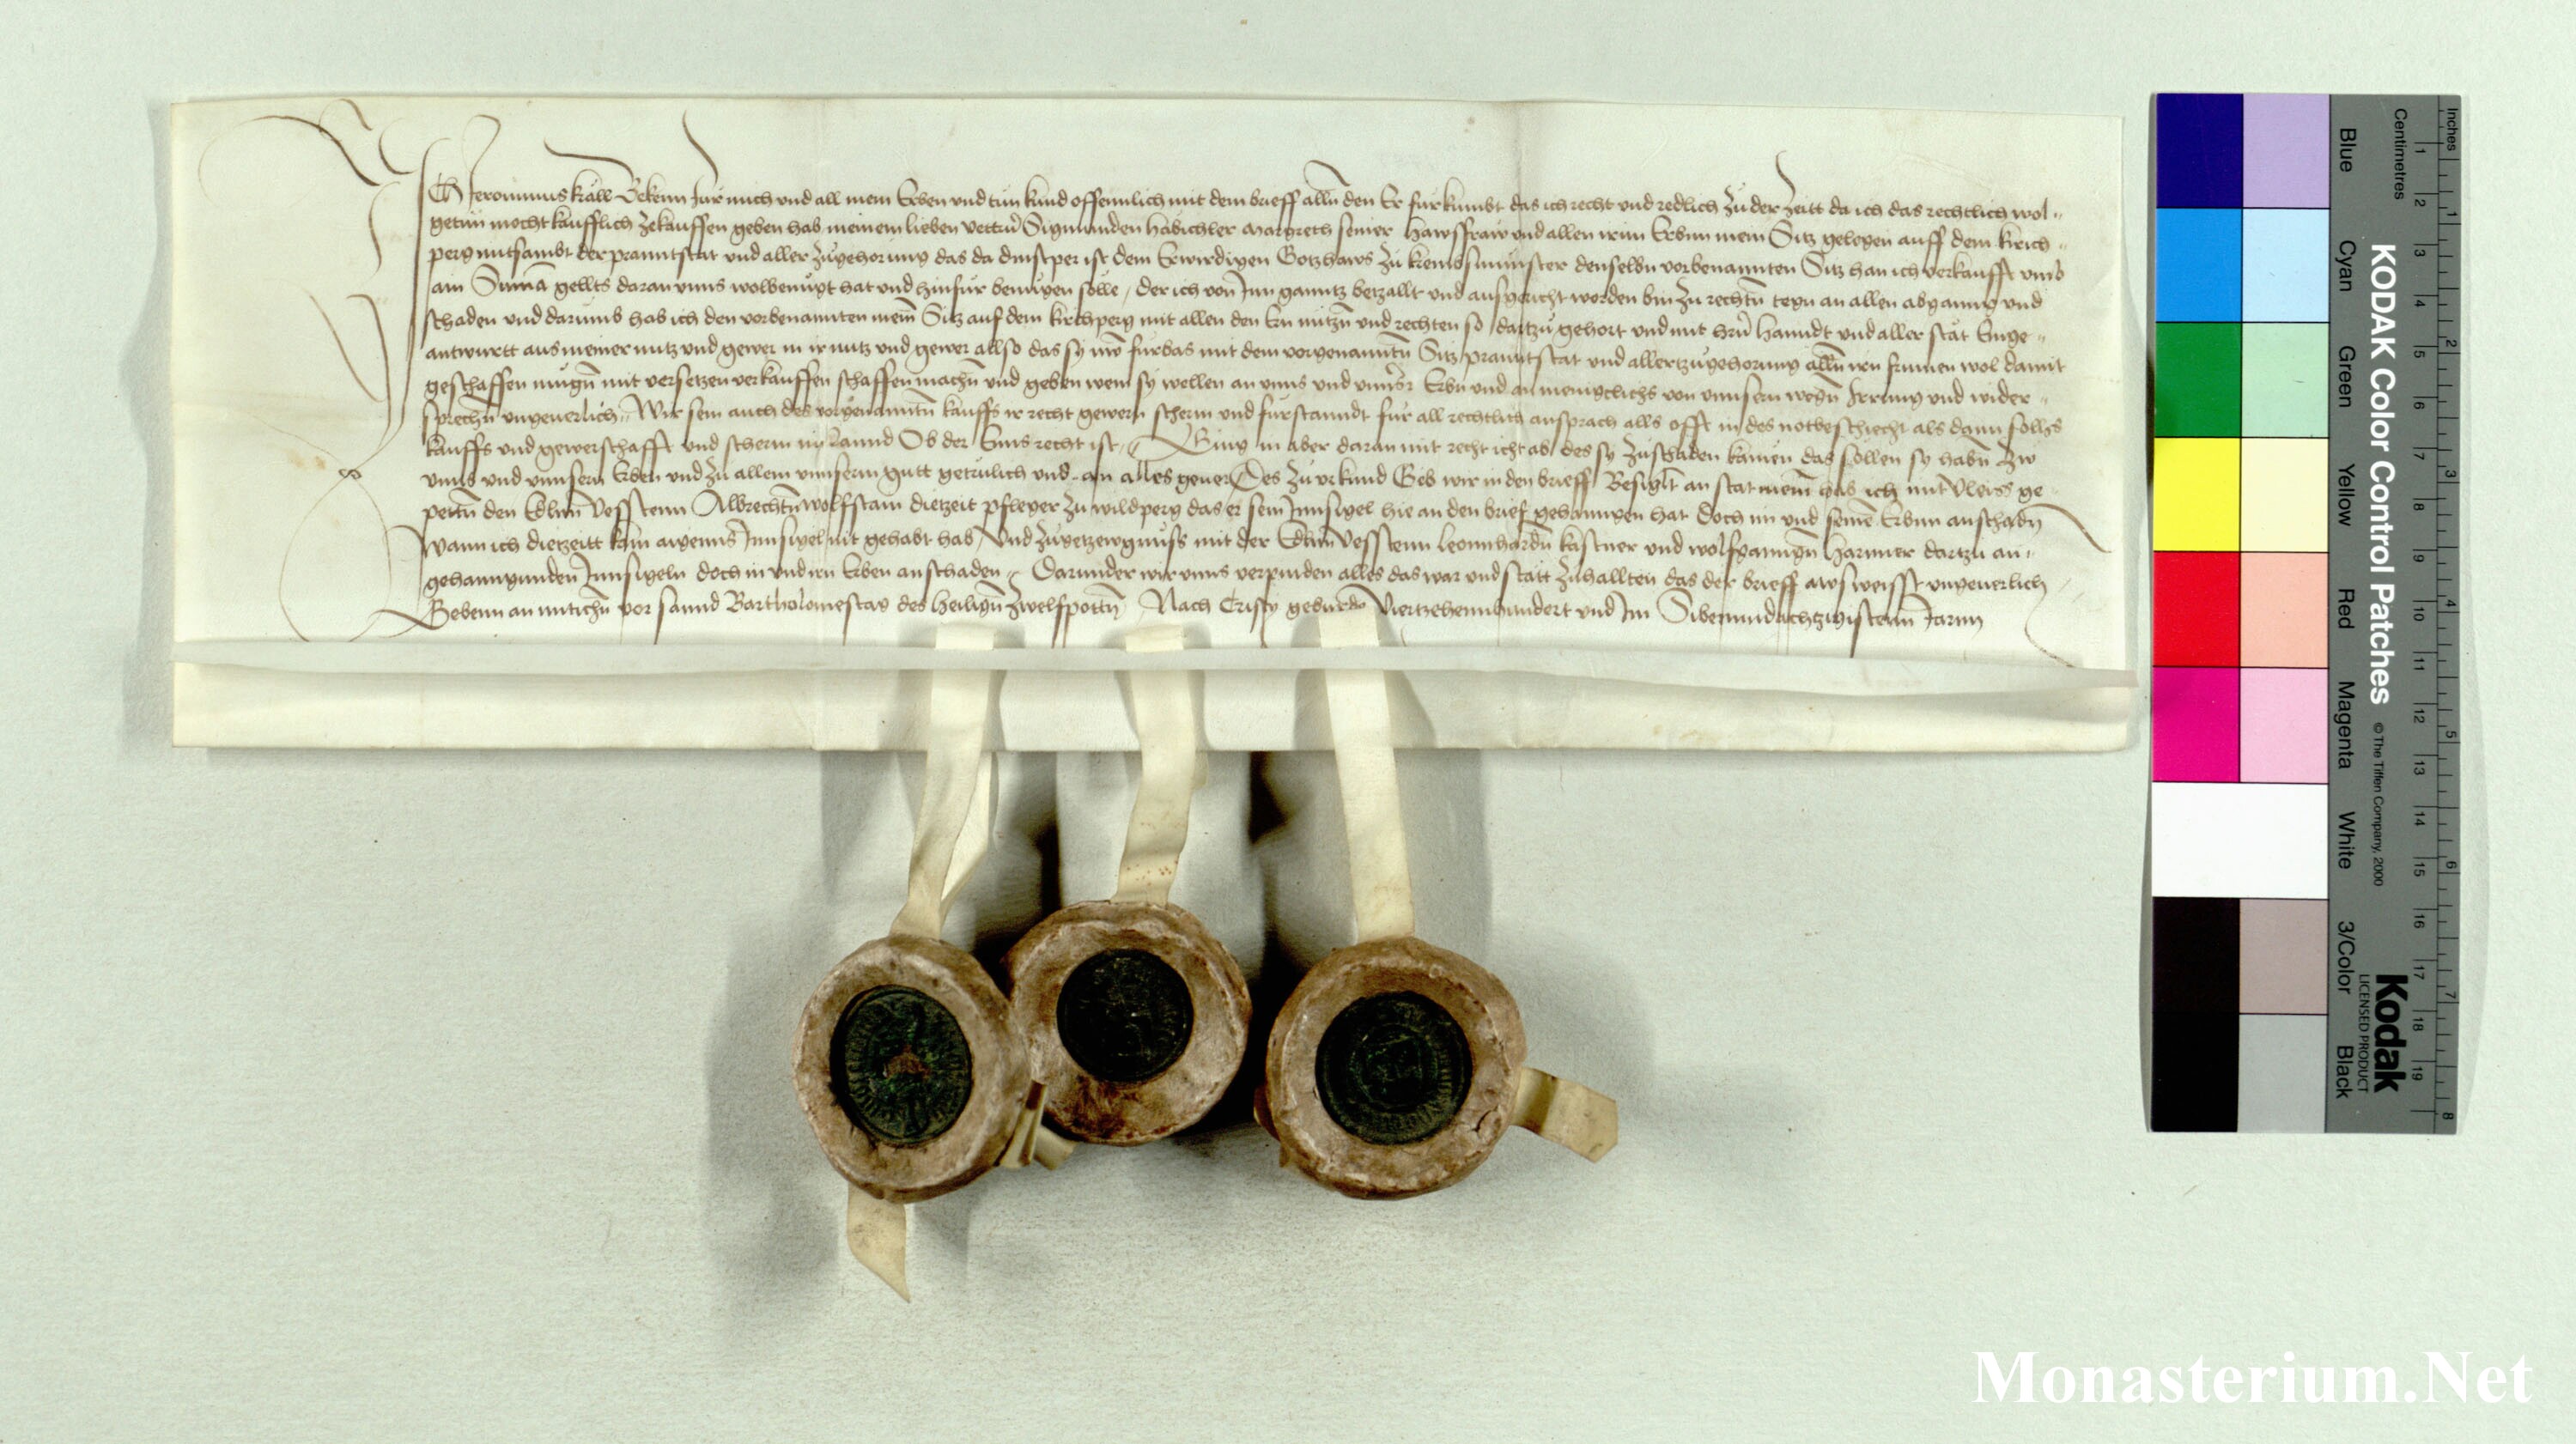 ICh Jeronimus kalb Bekenn fur mich vnd all mein Erben vnd tun kund offennlich mit dem brieff allen̄ den Er furkumbt das ich recht vnd redlich zu der zeitt da ich das rechtlich wol
getun mocht kaufflich zekauffen geben hab meinem lieben vettern̄ Sigmunden habichler Margreth seiner hawsfraw vnd allen irn Erbnn mein Sitz gelegen auff dem kirch
perg mitsambt der pranntstat vnd aller zugehorung das da dinstper ist dem Erwirdigen Gotzhaws zu kembsmunster denselbn vorbenannten Sitz han ich verkaufft vmb
ain Suma gellts daran vnns wolbenugt hat vnd hinfur benugen solle / der ich von Inn ganntz betzallt vnd ausgericht worden bin zu rechtn̄ tegn an allen abganng vnd
schaden vnd darumb hab ich den vorbenannten mein̄ Sitz auf dem kirchperg mit allen den Ern nutzn̄ vnd rechten so dartzu gehort vnd mit hanndt vnd aller stat Einge
antwurtt aus meiner nutz vnd gewer in ir nutz vnd gewer allso das sy nw furbas mit dem vorgenanntn̄ Sitz pranntstat vnd aller zugehorung allen̄ irn frumen wol damit
geschaffen mugn̄ mit versetzen verkauffen schaffen machn̄ vnd geben wem sy wellen an vnns vnd vnnsr̄ Erbn vnd an menigclichs von vnnsern wegn̄ Irrung vnd wider
sprechn̄ vngeuerlich Wir sein auch des vorgenanntn̄ kauffs ir recht gewern scherm vnd furstanndt fur all rechtlich ansprach alls offt in des notbeschiecht als dann sollhs
kauffs vnd gewerschafft vnd scherm im lannd Ob der Enns recht ist Ging in aber daran mit recht icht ab des sy zuschaden kamen das sollen sy habn̄ zw
vnns vnd vnnsern Erben vnd zu allem vnnserm gutt getrulich vnd an alles geuer Des zu vrkund Geb wir in den brieff Besiglt an stat mein̄ hab ich mit vleiss ge
petn̄ den Edlnn̄ vesstenn Albrechtn̄ wolfstain dietzeit pfleger zu wildperg das er sein Innsigel hie an den brief gehanngen hat doch im vnd seinē Erbnn anschadn
Wann ich dietzeitt kain aigenns Innsigel nit gehabt hab Vnd zu getzewgnuss mit der Edlnn̄ vesstenn leonnhardn̄ kastner vnd wolfganngn̄ harmer dartzu an
gehanngunden Innsigeln doch in vnd irn Erben anschaden Darunder wir vnns verpinden alles das war vnd statt zuhallten das der brieff awsweisst vngeuerlich
Gebenn an mitichn̄ vor sannd Bartholomestag des heilign̄ zwelfpottn̄ Nach Cristy geburde Viertzehennhundert vnd Im Sibenunndachtzigistenn Jarnn
KODAK Color Control Patches © The Tiffen Company, 2000
Kodak
LICENSED PRODUCT
Blue Cyan Green Yellow Red Magenta White 3/Color Black
Centimetres 1 2 3 4 5 6 7 8 9 10 11 12 13 14 15 16 17 18 19
Inches 1 2 3 4 5 6 7 8
Monasterium.Net